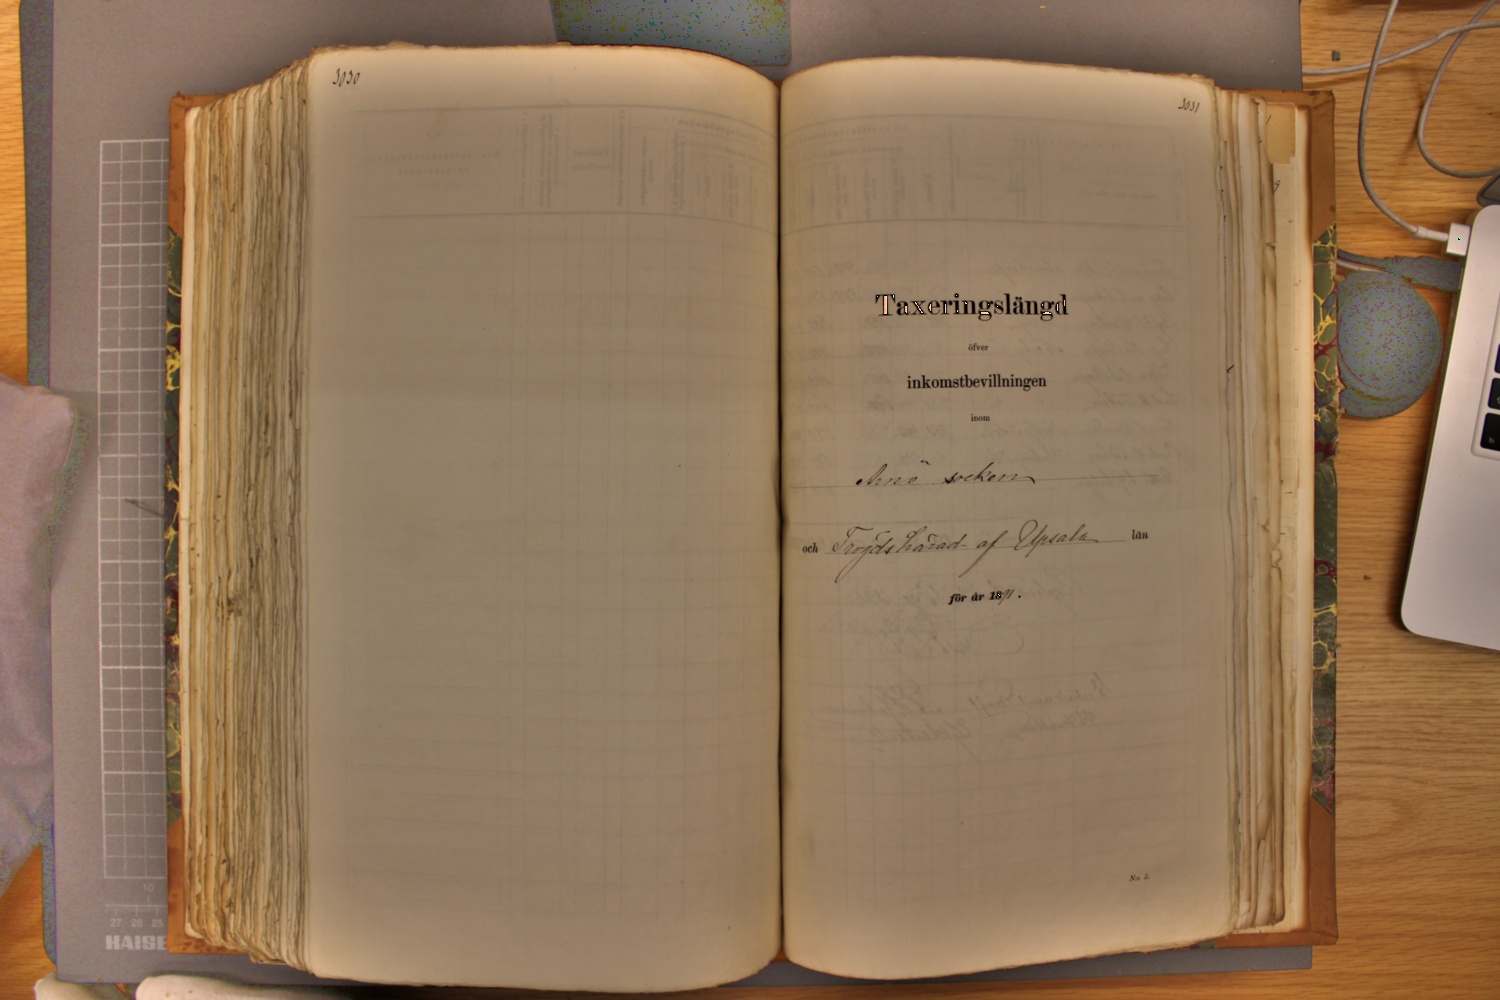 3030
3031
Taxeringslängd
öfver
inkomstbevillningen
inom
Arnö socken
och Trögds härad af Upsala län
för år 1891.
No 5.
10
27 26 25
KAISE